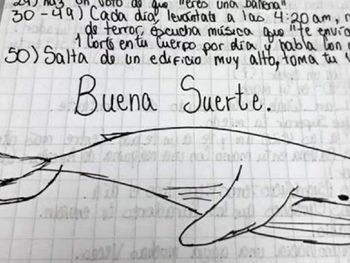 Haz un voto de que "eres una ballena"
30-49) Cada día, levántate a las 4:20am,
de terror, escucha música que "te
1 corte en tu cuerpo por día y habla con
50) Salta de un edificio muy alto, toma tu
Buena Suerte.